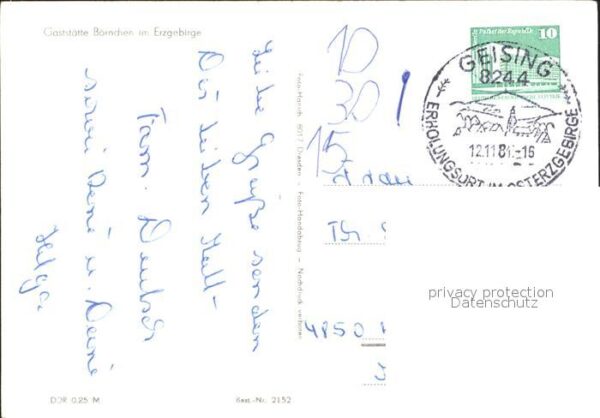 Gaststätte Börnchen im Erzgebirge
Liebe Grüße senden
Dir lieben Kätt-
Fam. Deuber
sowie René u. Deine
Helga
DDR 0,25 M
Best.-Nr. 2152
Foto-Harich 8017 Dresden - Foto-Handabzug - Nachdruck verboten
10
30!
15
Palast der Republik
10
GEISING
8244
ERHOLUNGSORT IM OSTERZGEBIRGE
12.11.81-16
Frau
Th
4850
privacy protection
Datenschutz